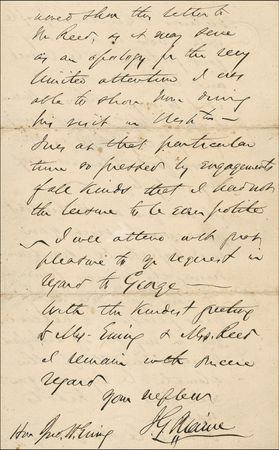 show this letter to
Mr Reed, as it may serve
as an apology for the very
limited attention I was
able to show him during
his visit in Washtn —
I was at that particular
time so pressed by engagements
of all kinds that I had not
the leisure to be even polite
I will attend with great
pleasure to yr request in
regard to George —
With the kindest greeting
to Mrs. Ewing & Mrs. Reed
I remain with sincere
regard
Your nephew
J G Blaine
Hon Jno. H. Ewing